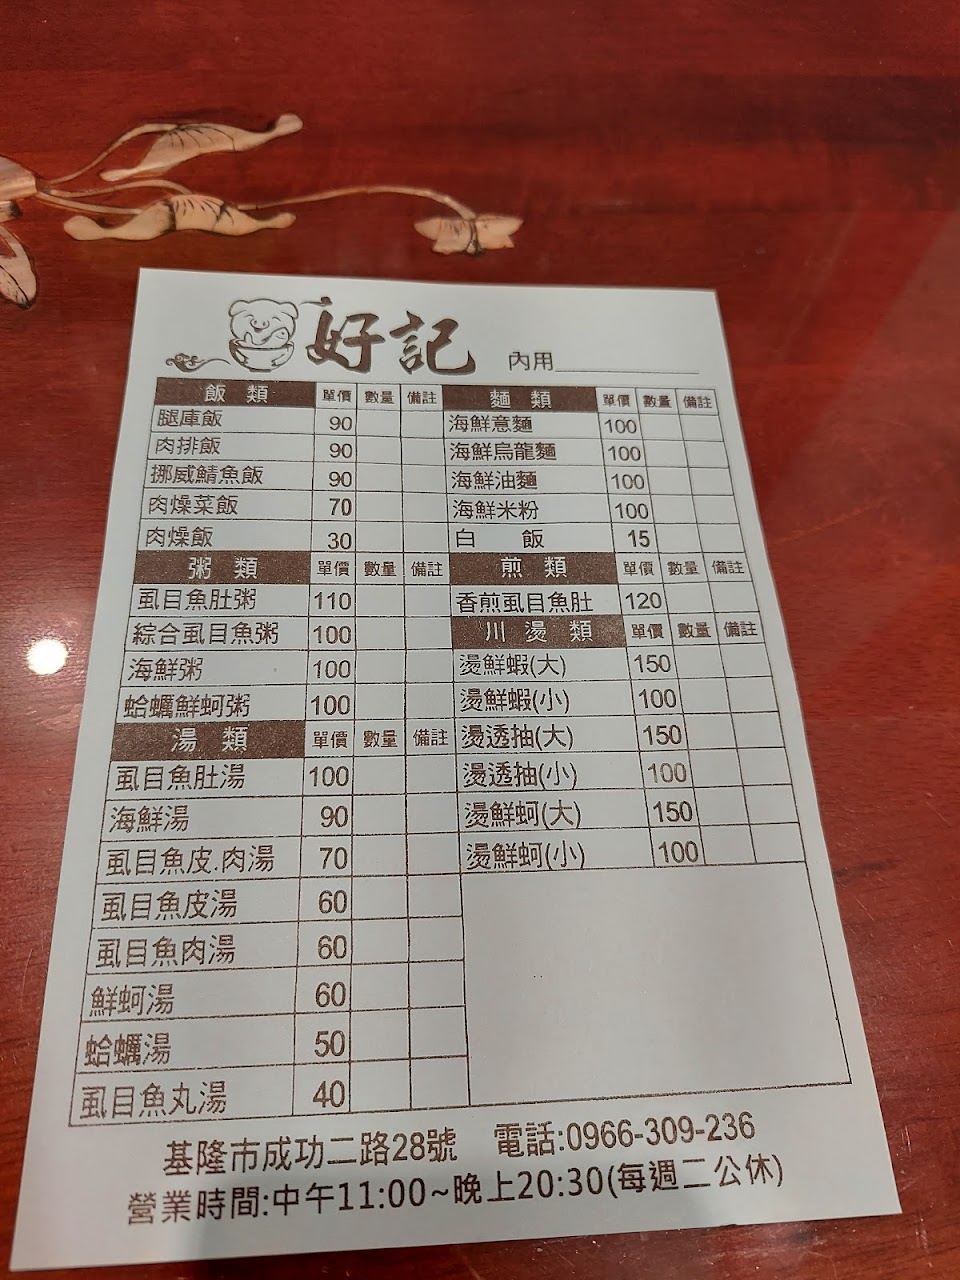 好記 內用
飯類 單價 數量 備註
腿庫飯 90
肉排飯 90
挪威鯖魚飯 90
肉燥菜飯 70
肉燥飯 30
粥類 單價 數量 備註
虱目魚肚粥 110
綜合虱目魚粥 100
海鮮粥 100
蛤蠣鮮蚵粥 100
湯類 單價 數量 備註
虱目魚肚湯 100
海鮮湯 90
虱目魚皮.肉湯 70
虱目魚皮湯 60
虱目魚肉湯 60
鮮蚵湯 60
蛤蠣湯 50
虱目魚丸湯 40
麵類 單價 數量 備註
海鮮意麵 100
海鮮烏龍麵 100
海鮮油麵 100
海鮮米粉 100
白飯 15
煎類 單價 數量 備註
香煎虱目魚肚 120
川燙類 單價 數量 備註
燙鮮蝦(大) 150
燙鮮蝦(小) 100
燙透抽(大) 150
燙透抽(小) 100
燙鮮蚵(大) 150
燙鮮蚵(小) 100
基隆市成功二路28號 電話:0966-309-236
營業時間:中午11:00~晚上20:30(每週二公休)